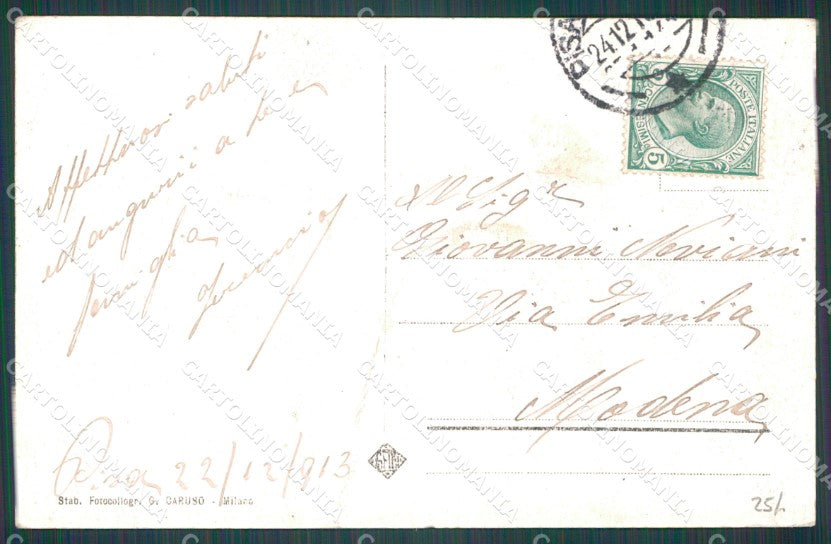 Affettuosi saluti
ed auguri a te e
famiglia
Pisa 22/12/913
Stab. Fotocollogr. G. CARUSO - Milano
PISA
24.12.1
POSTE ITALIANE
CENTESIMI
5
Al Sigr
Giovanni
Via Emilia
Modena
25/.
CARTOLINOMANIA